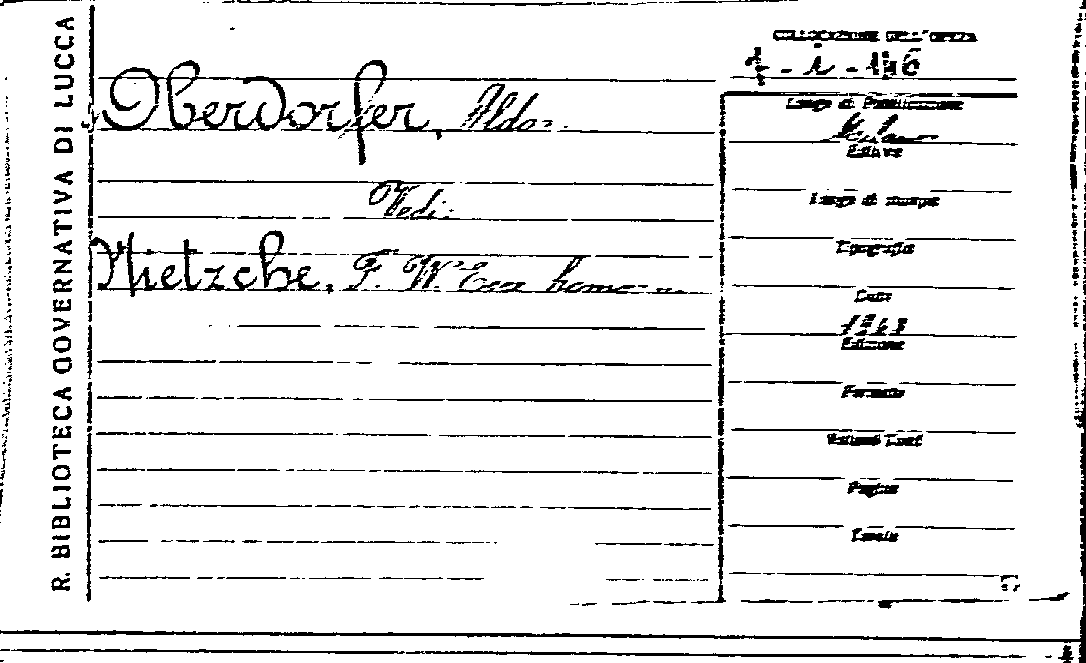 R. BIBLIOTECA GOVERNATIVA DI LUCCA
COLLOCAZIONE DELL'OPERA
Oberdorfer, Aldo
Vedi:
Nietzche, F. W. Ecce homo
Luogo di Pubblicazione
Milano
Editore
Luogo di stampa
Tipografia
Data
Edizione
Formato
Volumi
Pagine
Tavole